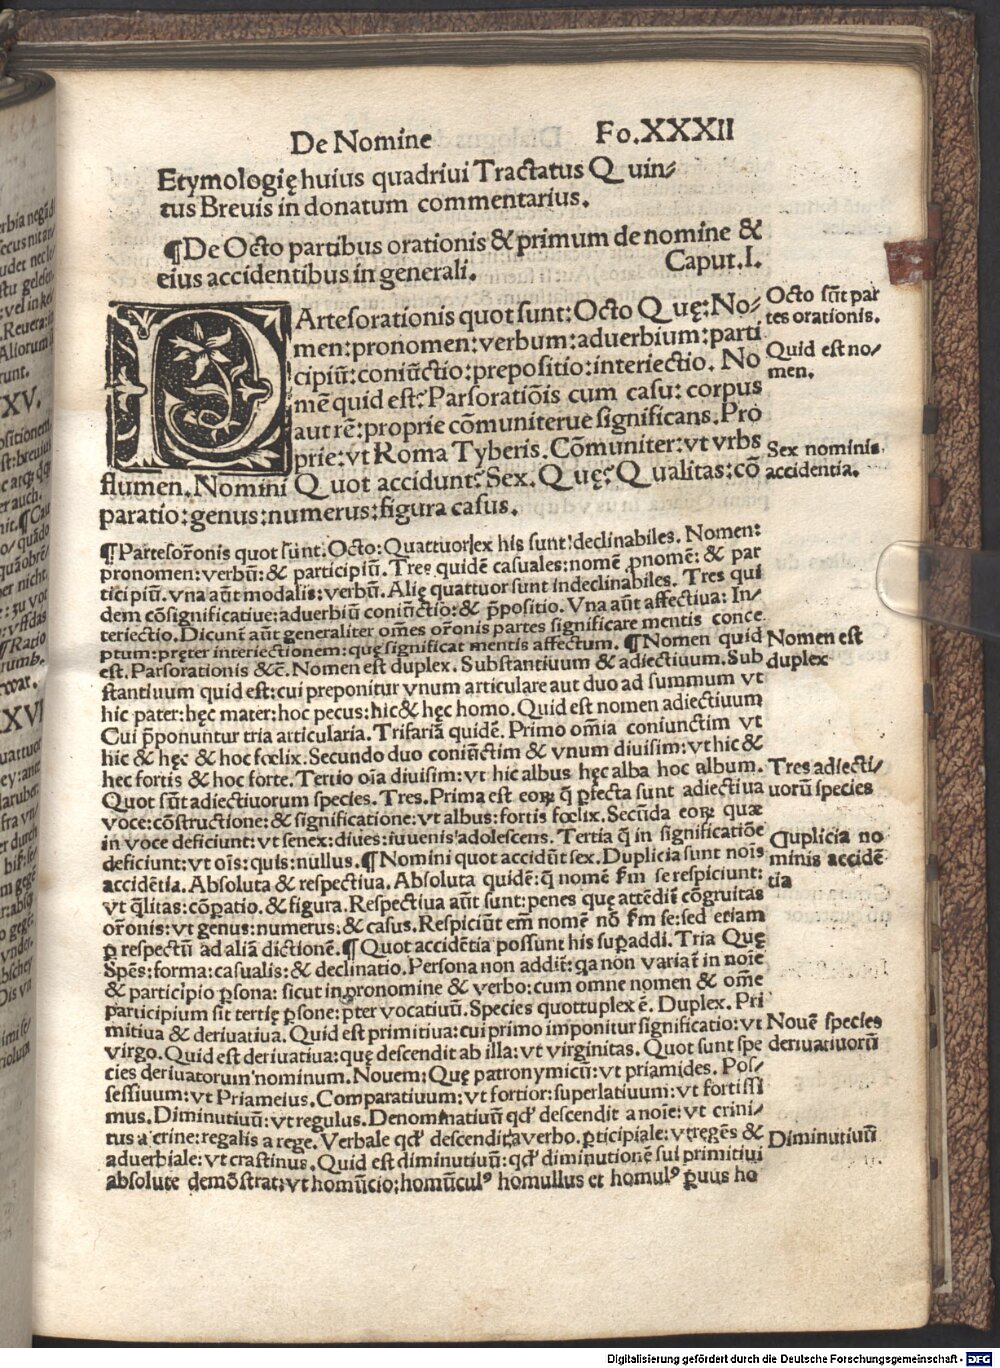 De Nomine Fo.XXXII
Etymologię huius quadriui Tractatus Quin⸗
tus Breuis in donatum commentarius.
¶De Octo partibus orationis & primum de nomine &
eius accidentibus in generali. Caput.I.
PArtesorationis quot sunt: Octo Quę: No⸗
men: pronomen: verbum: aduerbium: parti
cipiū: coniūctio: prepositio: interiectio. No
mē quid est: Parsoratiōis cum casu: corpus
aut rē: proprie cōmuniterue significans. Pro
prie: vt Roma Tyberis. Cōmuniter: vt vrbs
flumen. Nomini Quot accidunt: Sex. Quę: Qualitas: cō
paratio: genus: numerus: figura casus.
Octo sūt par
tes orationis.
Quid est no⸗
men.
Sex nominis
accidentia.
¶Partesorōnis quot sunt. Octo: Quattuor ex his sunt declinabiles. Nomen:
pronomen: verbū: & participiū. Tres quidē casuales: nomē p̄nomē: & par
ticipiū. vna aūt modalis: verbū. Alię quattuor sunt indeclinabiles. Tres qui
dem cōsignificatiue: aduerbiū coniūctio: & p̄positio. Vna aūt affectiua: In⸗
teriectio. Dicunt̄ aūt generaliter om̄es orōnis partes significare mentis conce
ptum: pręter interiectionem: quę significat mentis affectum. ¶Nomen quid
est. Parsorationis &c̄. Nomen est duplex. Substantiuum & adiectiuum. Sub
stantiuum quid est: cui preponitur vnum articulare aut duo ad summum vt
hic pater: hęc mater: hoc pecus: hic & hęc homo. Quid est nomen adiectiuum
Cui p̄ponuntur tria articularia. Trifariā quidē. Primo om̄ia coniunctim vt
hic & hęc & hoc fœlix. Secundo duo coniūctim & vnum diuisim: vt hic &
hec fortis & hoc forte. Tertio oīa diuisim: vt hic albus hęc alba hoc album.
Quot sūt adiectiuorum species. Tres. Prima est eoꝝ q̄ ꝑfecta sunt adiectiua
voce: cōstructione: & significatione: vt albus: fortis fœlix. Secūda eoꝝ quæ
in voce deficiunt: vt senex: diues: iuuenis adolescens. Tertia q̄ in significatiōe
deficiunt: vt oīs: quis: nullus. ¶Nomini quot accidūt sex. Duplicia sunt noīs
accidētia. Absoluta & respectiua. Absoluta quidē: q̄ nomē fm se respiciunt:
vt q̄litas: cōꝑatio. & figura. Respectiua aūt sunt: penes quę attēdit̄ cōgruitas
orōnis: vt genus: numerus: & casus. Respiciūt em̄ nomē nō fm se: sed etiam
ꝑ respectū ad aliā dictionē. ¶Quot accidētia possunt his suꝑaddi. Tria Quę
Spēs: forma: casualis: & declinatio. Persona non addit̄: qa non variat̄ in noīe
& participio ꝑsona: sicut in pronomine & verbo: cum omne nomen & om̄e
participium sit tertię ꝑsone: p̄ter vocatiuū. Species quottuplex ē. Duplex. Pri
mitiua & deriuatiua. Quid est primitiua: cui primo imponitur significatio: vt
virgo. Quid est deriuatiua: quę descendit ab illa: vt virginitas. Quot sunt spe
cies deriuatorum nominum. Nouem: Quę patronymicū: vt priamides. Pos⸗
sessiuum: vt Priameius. Comparatiuum: vt fortior: superlatiuum: vt fortissi
mus. Diminutiuū: vt regulus. Denominatiuū qd' descendit a noīe: vt crini⸗
tus a crine: regalis a rege. Verbale qd' descendit a verbo. ꝑticipiale: vt regēs &
aduerbiale: vt crastinus. Quid est diminutiuū: qd' diminutionē sui primitiui
absolute demōstrat: vt homūcio: homūculꝰ homullus et homulꝰ ꝑuus ho
Nomen est
duplex
Tres adiecti⸗
uorū species
Duplicia no
minis accidē
tia
Nouē species
deriuatiuorū
Diminutiuū
Digitalisierung gefördert durch die Deutsche Forschungsgemeinschaft - DFG